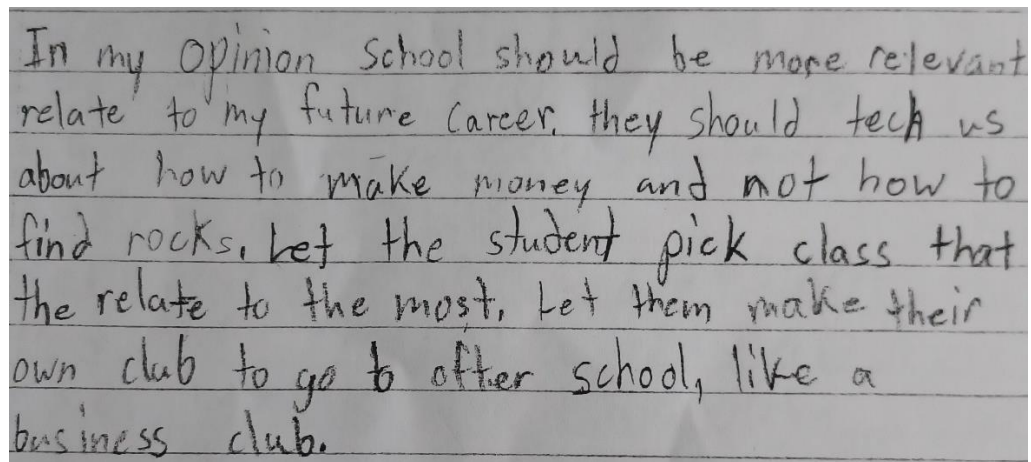 In my opinion School should be more relevant
relate to my future Career. they should tech us
about how to make money and not how to
find rocks. Let the student pick class that
the relate to the most. Let them make their
own club to go to after school, like a
business club.